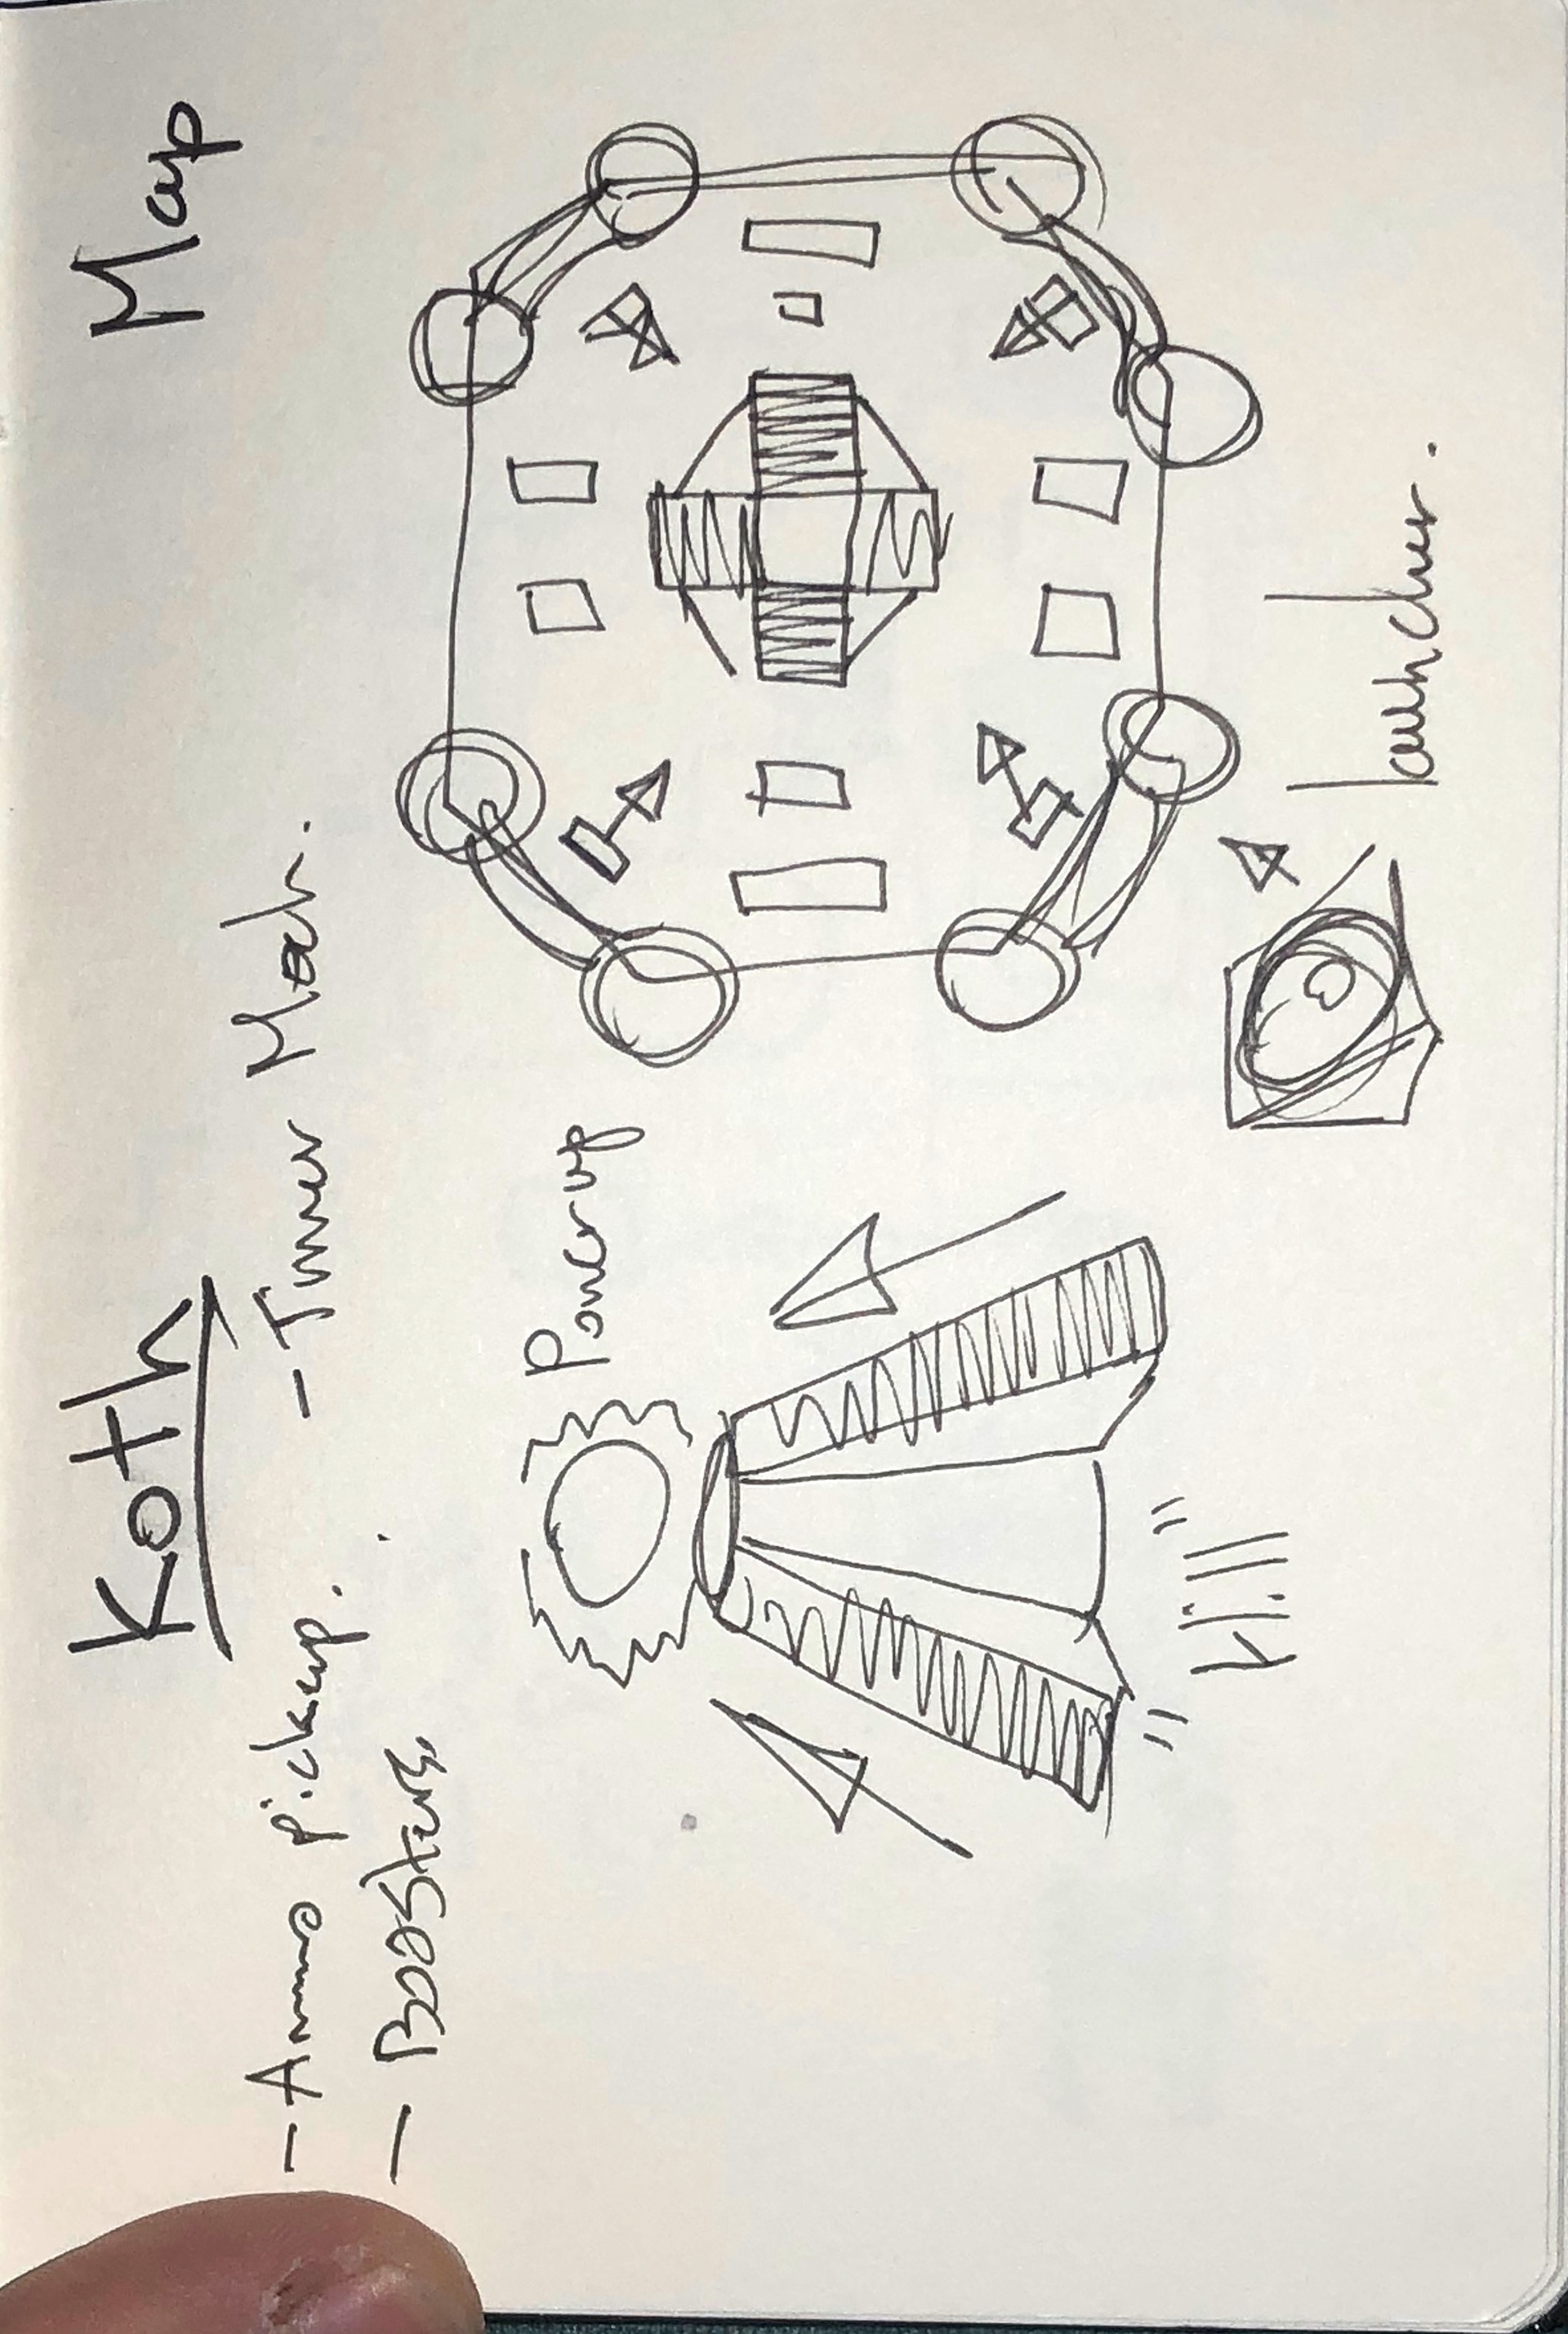 Koth
Map
- Ammo pickup.
- Timer Mech.
- Boosters
Powerup
"Kill"
Launcher.